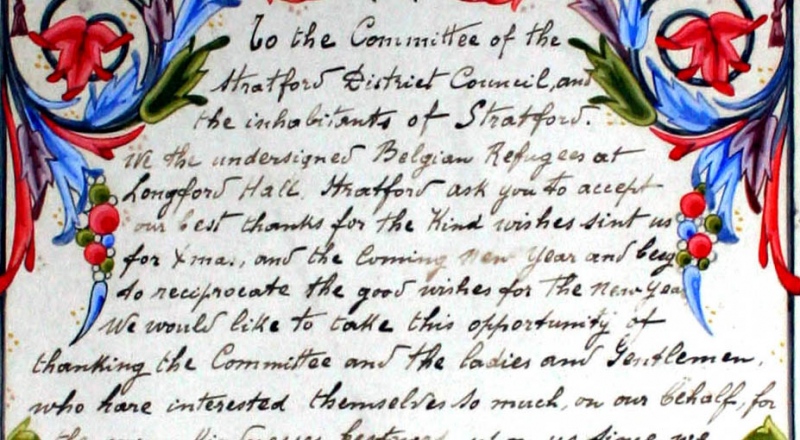 To the Committee of the
Stratford District Council, and
the inhabitants of Stratford.
We the undersigned Belgian Refugees at
Longford Hall, Stratford ask you to accept
our best thanks for the Kind wishes sint us
for Xmas, and the Coming New Year and beg
to reciprocate the good wishes for the New Year
We would like to take this opportunity of
thanking the Committee and the ladies and Gentlemen,
who have interested themselves so much, on our behalf, for
the many Kindnesses bestowed upon us since we